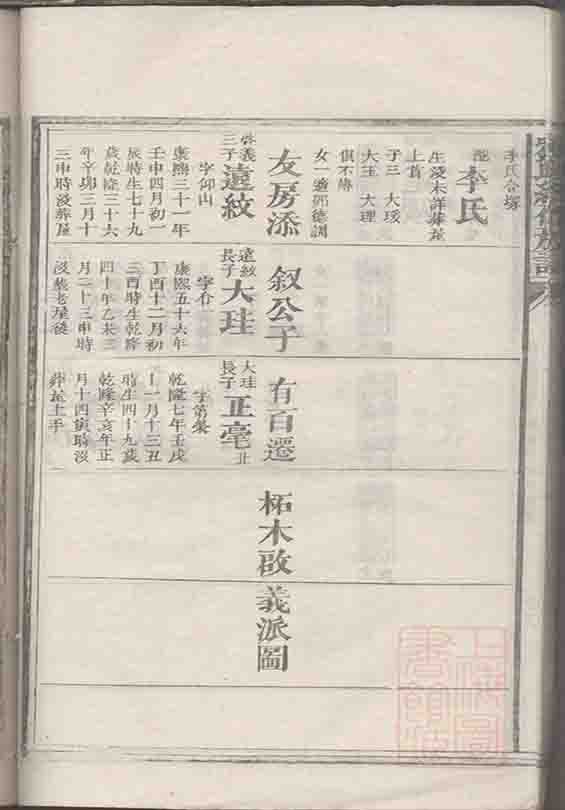 李氏合塚
配
李氏
生沒未詳葬茔
上首
子三 大瑗
大玨 大理
俱不傳
女一適郭德調
友房添
叙公子
有百遷
柘木啟
義派圖
啓義
三子
遠紋
字仰山
康熙三十一年
壬申四月初一
辰時生七十九
歲乾隆三十六
年辛卯三月十
三申時沒葬屋
遠紋
長子
大珪
字介
康熙五十六年
丁酉十二月初
三酉時生乾隆
四十年乙未三
月二十三申時
沒葬老屋後
大珪
長子
正毫
北
乾隆七年壬戌
十一月十三丑
時生四十九歲
乾隆辛亥年正
月十四寅時沒
葬茔土手